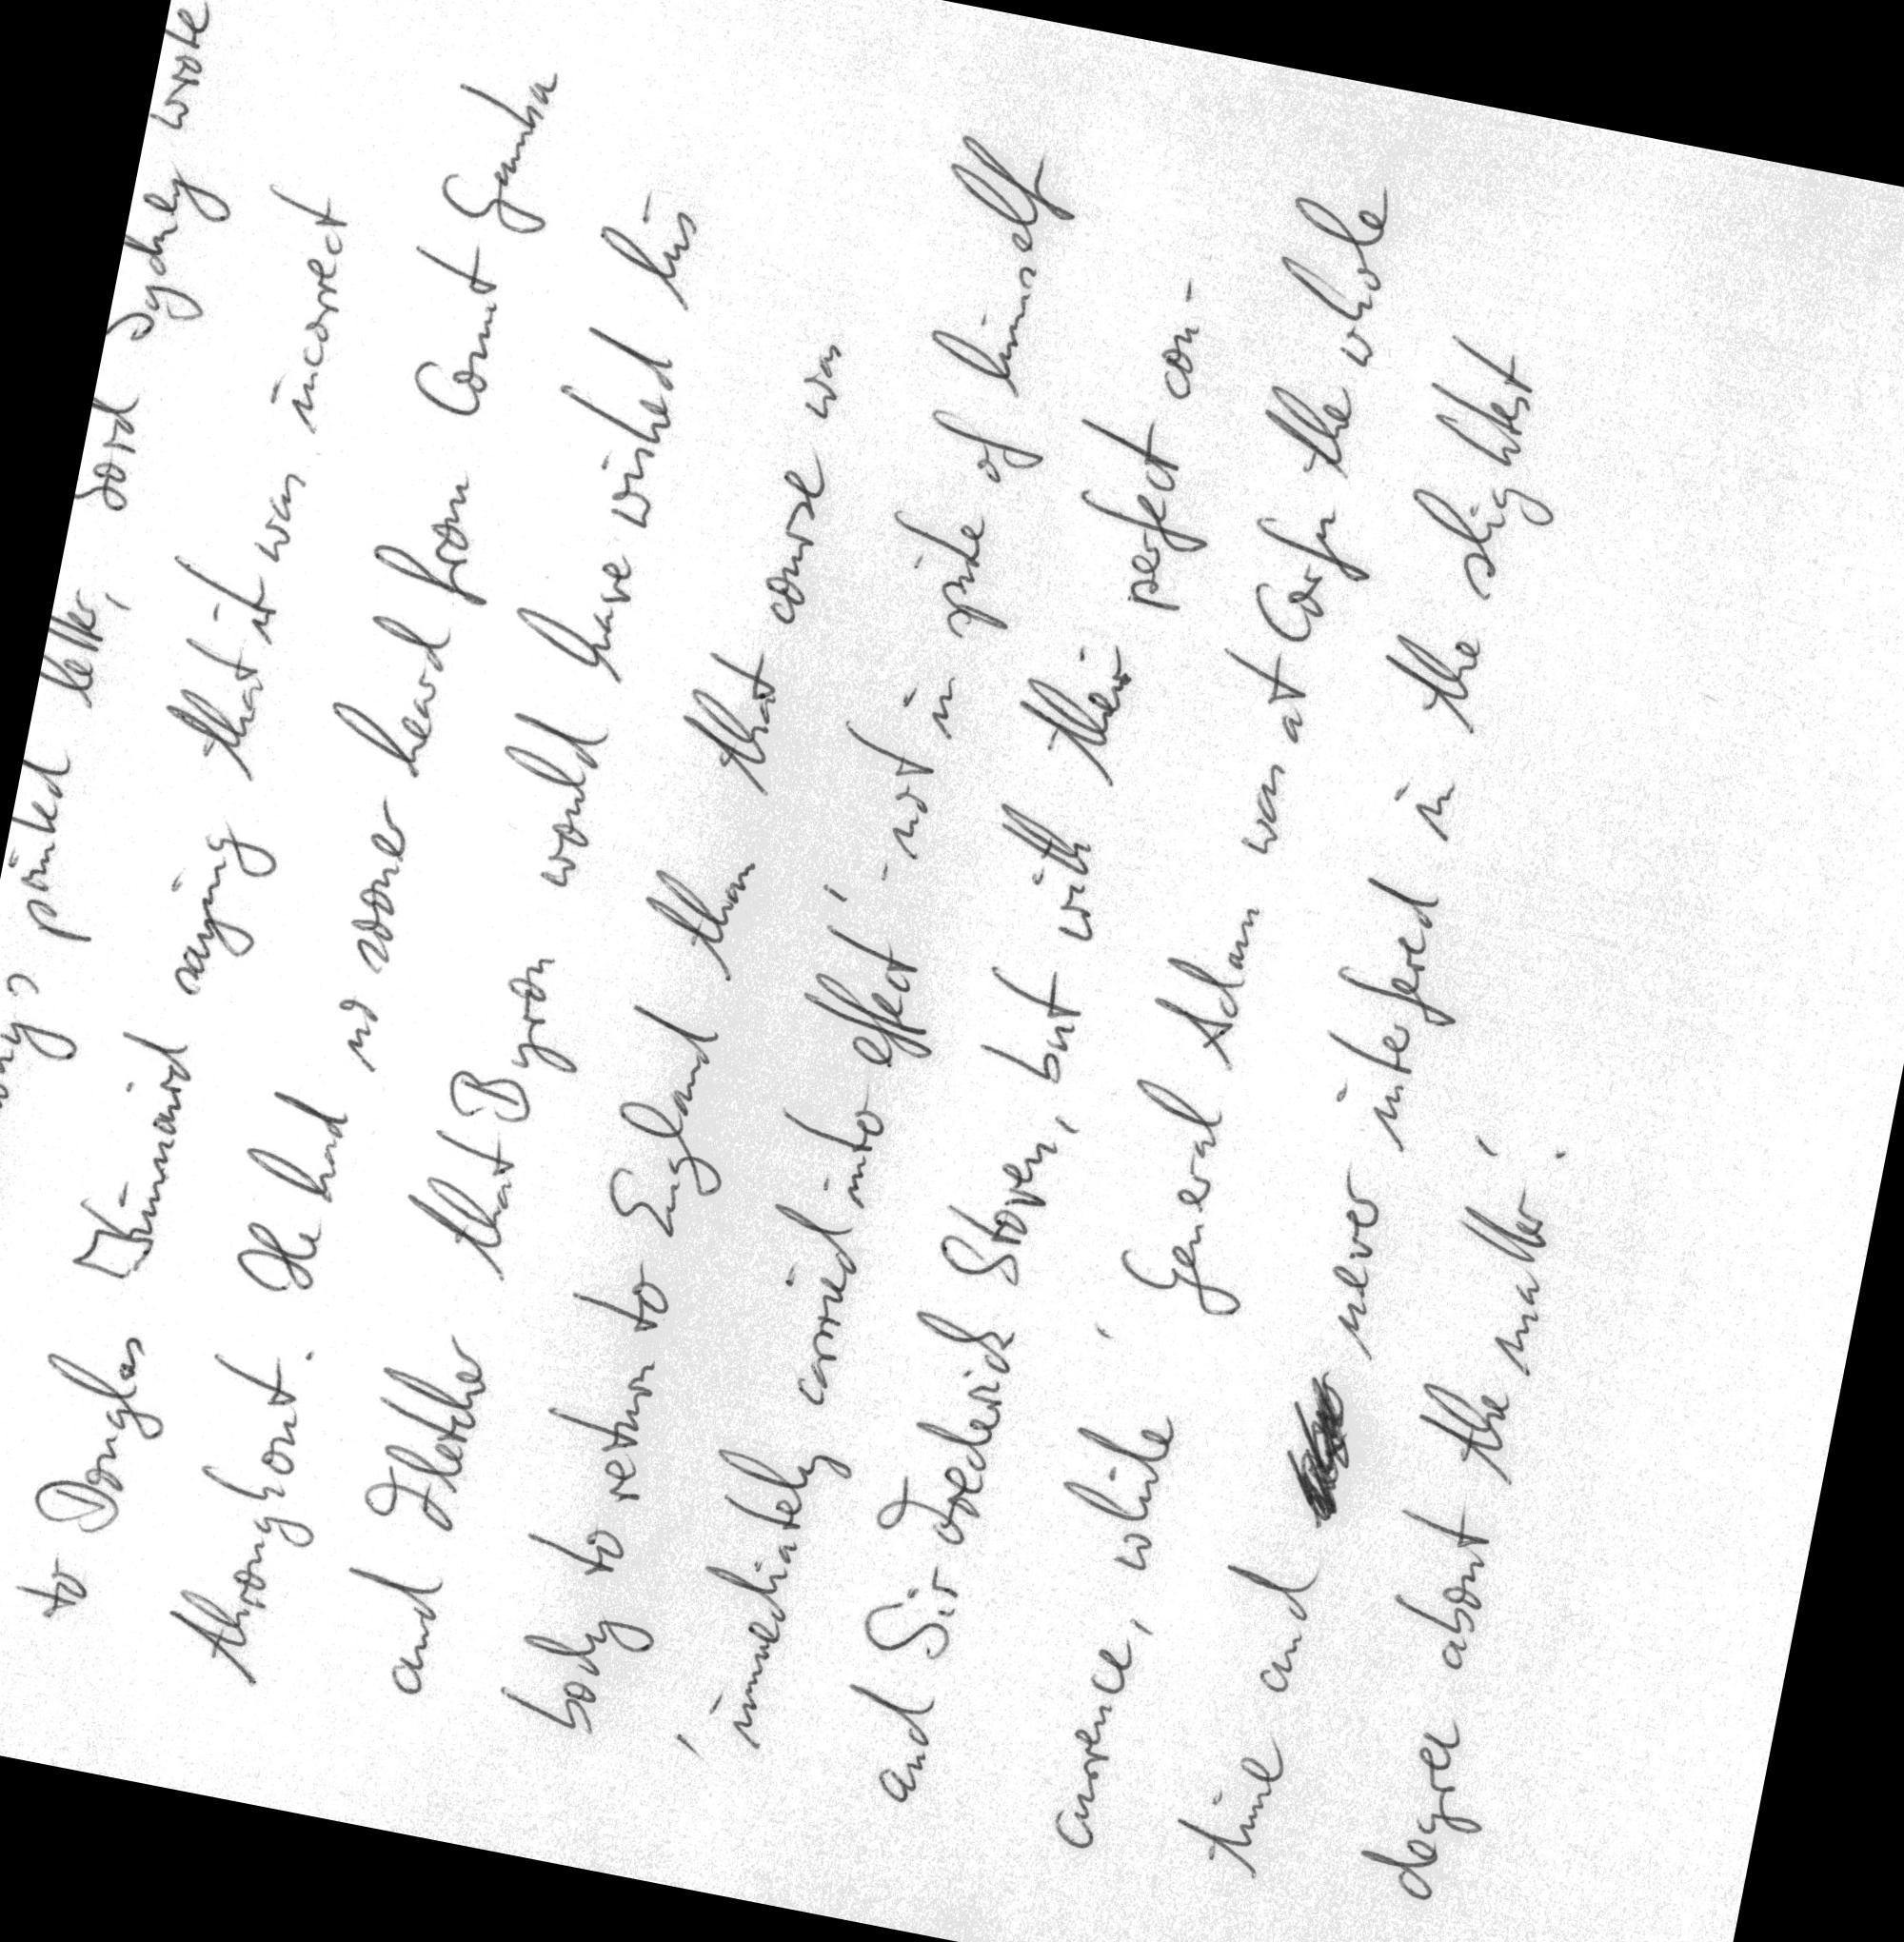 printed letter, Lord Sydney wrote
to Douglas Kinnaird saying that it was incorrect
throughout. He had no sooner heard from Count Gamba
and Fletcher that Byron would have wished his
body to return to England than that course was
'immediately carried into effect' - not in spite of himself
and Sir Frederick Stoven, but with their perfect con-
currence, while 'General Adam was at Corfu the whole
time and never interfered in the slightest
degree about the matter'.